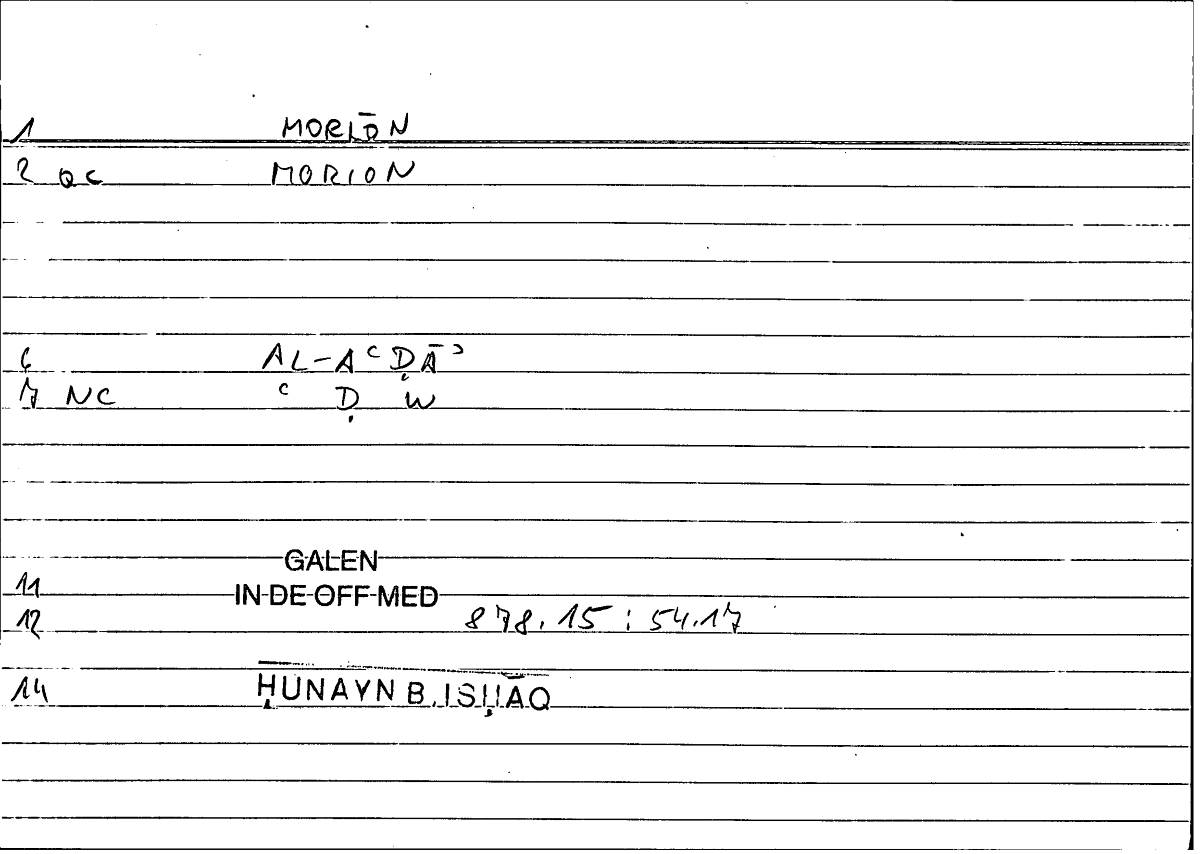 1 MORIŌN
2 QC MORION
6 AL-AʿḌĀʾ
7 NC ʿ Ḍ W
GALEN
11 IN DE OFF MED
12 878.15 : 54.17
14 ḤUNAYN B. ISḤĀQ